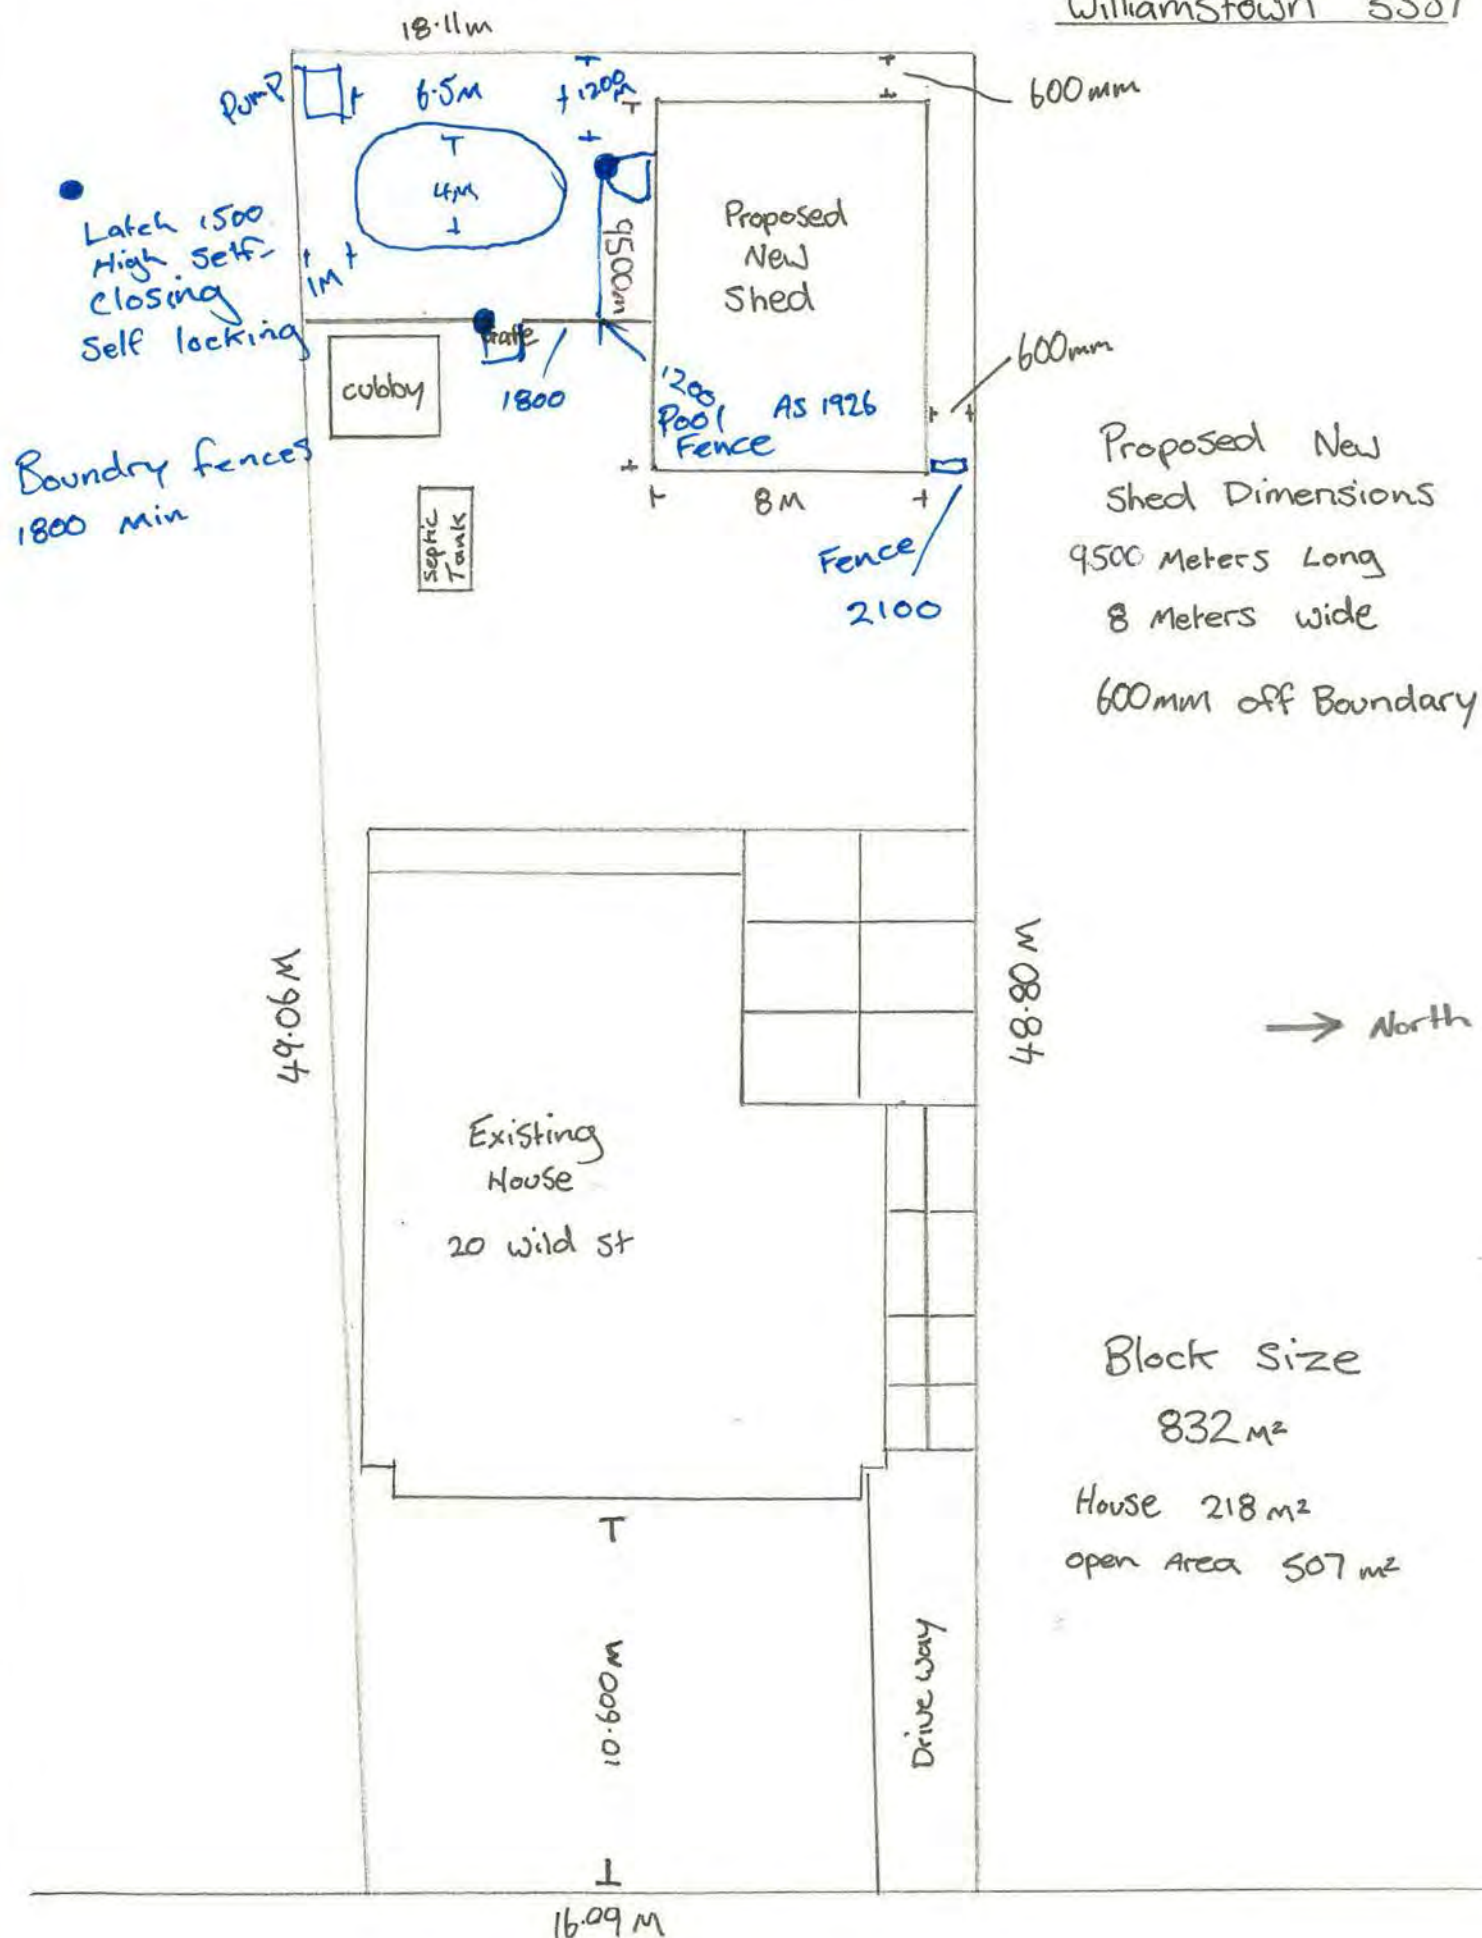 Williamstown 5351
18.11m
Pump
6.5M
1200
M
600mm
4M
Latch 1500
High Self-
closing
Self locking
1M
9500m
Proposed
New
Shed
Gate
cubby
1800
1200
Pool
Fence
AS 1926
600mm
Boundry fences
1800 Min
Septic
Tank
8M
Fence
2100
Proposed New
Shed Dimensions
9500 Meters Long
8 Meters wide
600mm off Boundary
49.06M
48.80M
North
Existing
House
20 wild st
Block Size
832 M²
House 218 m²
open Area 507 m²
10.600M
Drive way
16.09 M